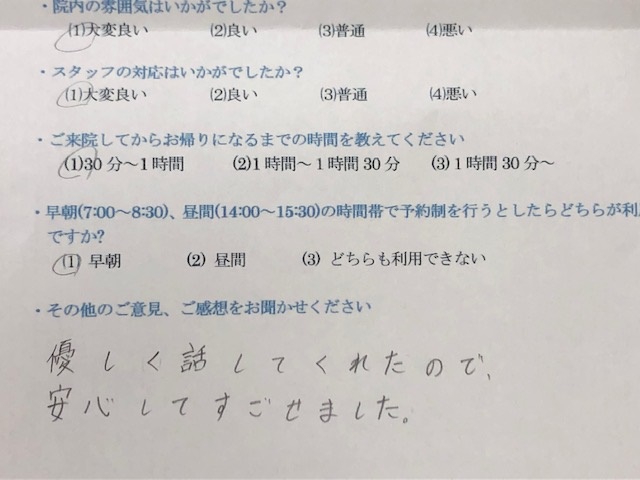 ・院内の雰囲気はいかがでしたか？
(1)大変良い (2)良い (3)普通 (4)悪い
・スタッフの対応はいかがでしたか？
(1)大変良い (2)良い (3)普通 (4)悪い
・ご来院してからお帰りになるまでの時間を教えてください
(1)30分～1時間 (2)1時間～1時間30分 (3)1時間30分～
・早朝(7:00～8:30)、昼間(14:00～15:30)の時間帯で予約制を行うとしたらどちらが利
ですか?
(1) 早朝 (2) 昼間 (3) どちらも利用できない
・その他のご意見、ご感想をお聞かせください
優しく話してくれたので、
安心してすごせました。